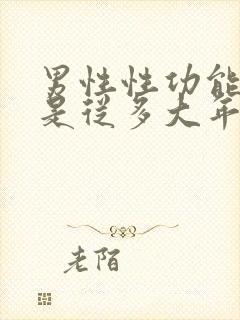 男性性功能
是从多大年
老陌